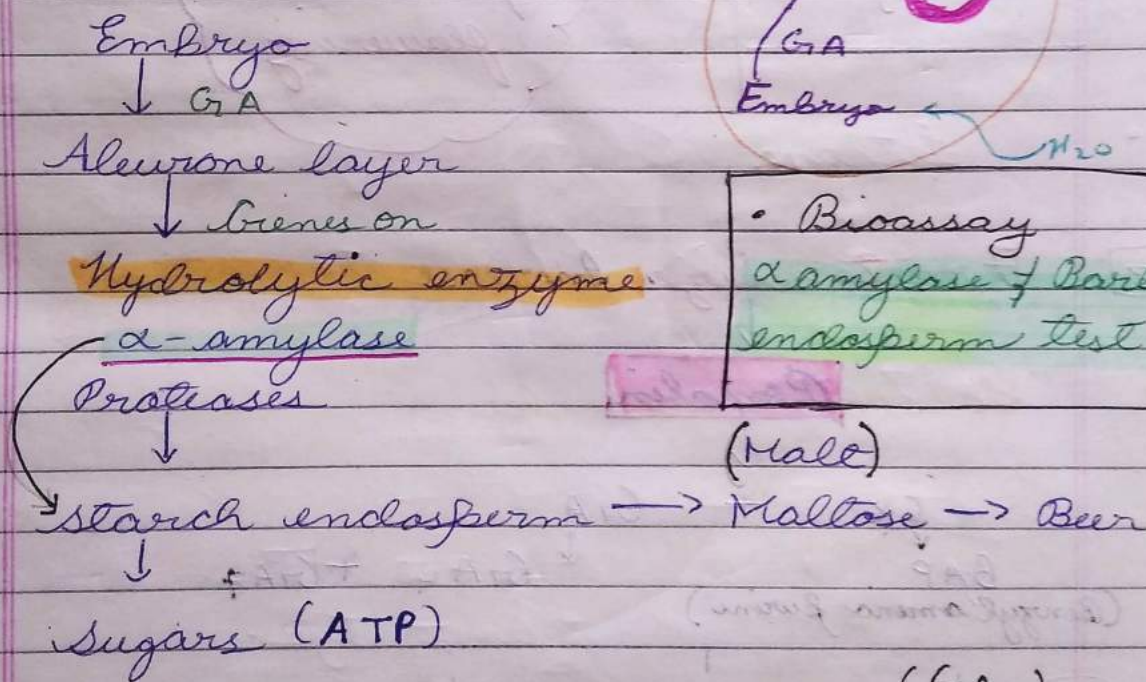 Embryo
↓ GA
Aleurone layer
↓ Genes on
Hydrolytic enzyme
α-amylase
Proteases
↓
Starch endosperm → Maltose → Beer
↓
Sugars (ATP)
GA
Embryo
H2O
• Bioassay
α amylase
endosperm test
(Malt)